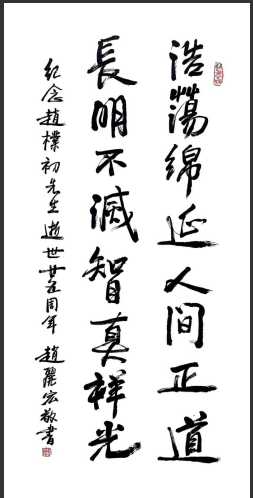 浩蕩绵延人间正道
長明不滅智真祥光
紀念趙樸初先生逝世廿五周年 趙麗宏敬書